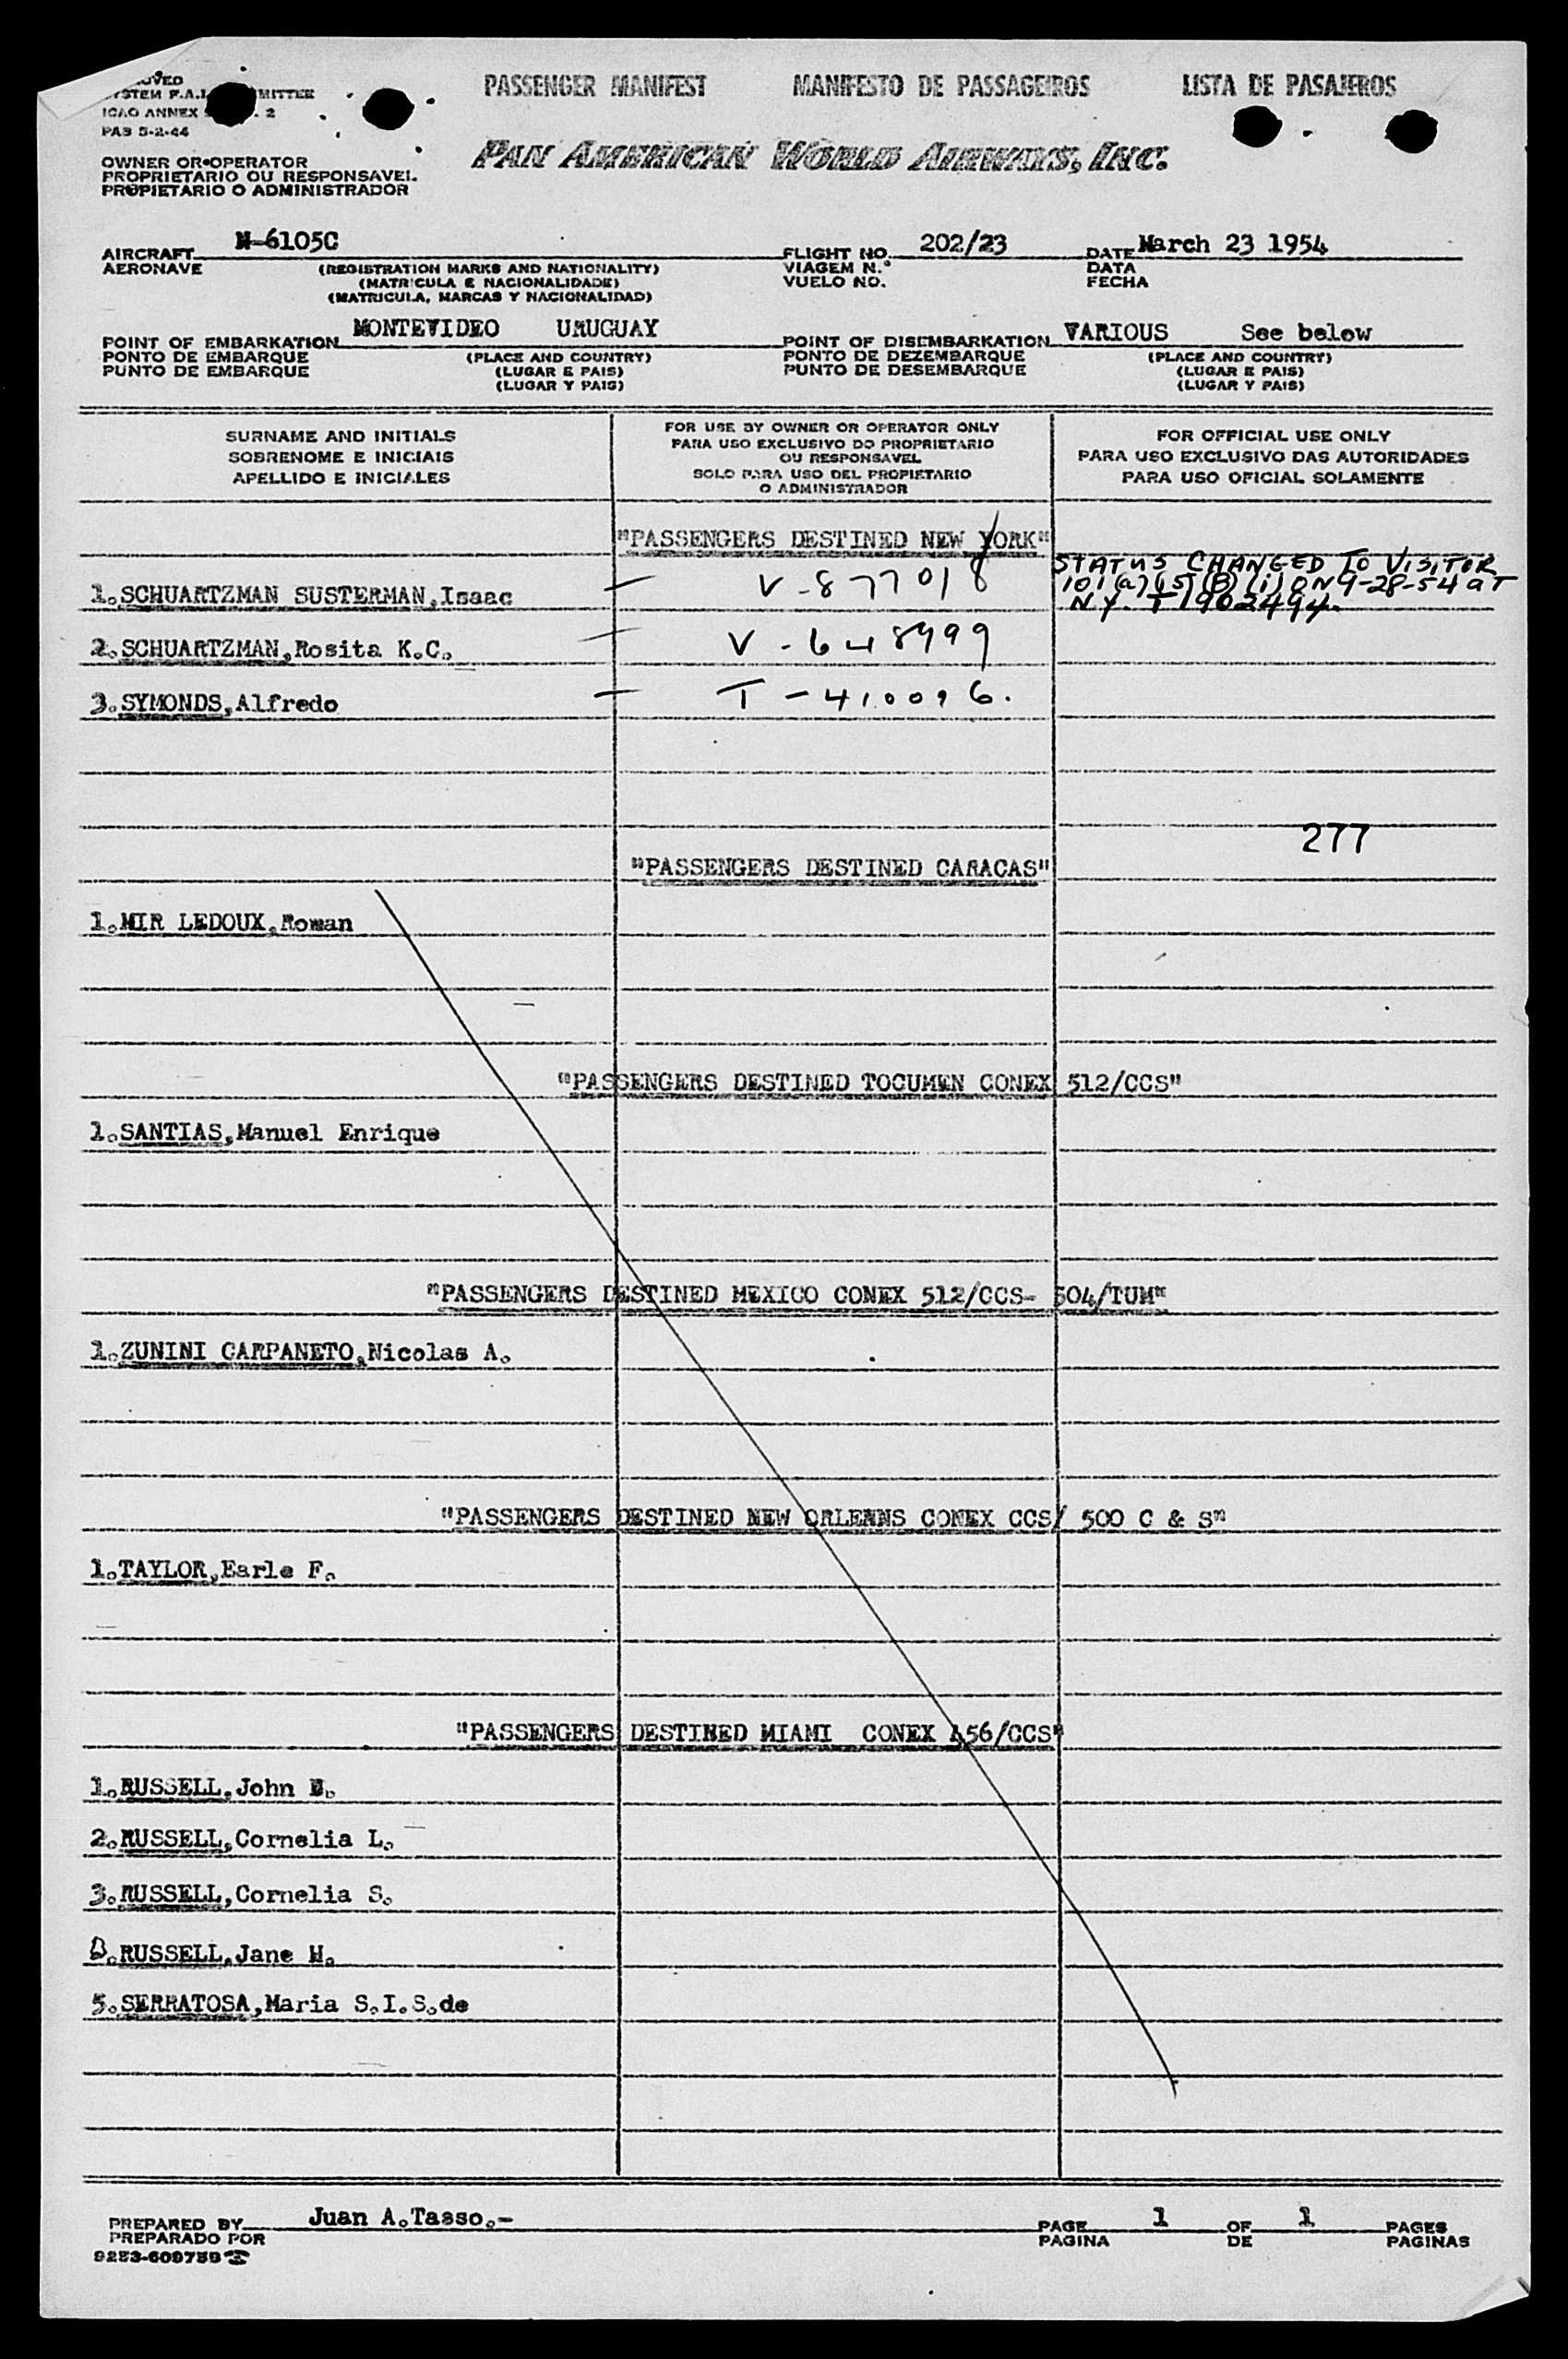 PASSENGER MANIFEST MANIFESTO DE PASSAGEIROS LISTA DE PASAJEROS
ICAO ANNEX 2
PAB 5-2-44
PAN AMERICAN WORLD AIRWAYS, INC.
OWNER OR OPERATOR
PROPRIETARIO OU RESPONSAVEL
PROPIETARIO O ADMINISTRADOR
AIRCRAFT N-6105C FLIGHT NO. 202/23 DATE March 23 1954
AERONAVE (REGISTRATION MARKS AND NATIONALITY) VIAGEM N.º DATA
(MATRICULA E NACIONALIDADE) VUELO NO. FECHA
(MATRICULA, MARCAS Y NACIONALIDAD)
POINT OF EMBARKATION MONTEVIDEO URUGUAY POINT OF DISEMBARKATION VARIOUS See below
PONTO DE EMBARQUE (PLACE AND COUNTRY) PONTO DE DEZEMBARQUE (PLACE AND COUNTRY)
PUNTO DE EMBARQUE (LUGAR E PAIS) PUNTO DE DESEMBARQUE (LUGAR E PAIS)
(LUGAR Y PAIS) (LUGAR Y PAIS)
SURNAME AND INITIALS
SOBRENOME E INICIAIS
APELLIDO E INICIALES
FOR USE BY OWNER OR OPERATOR ONLY
PARA USO EXCLUSIVO DO PROPRIETARIO
OU RESPONSAVEL
SOLO PARA USO DEL PROPIETARIO
O ADMINISTRADOR
FOR OFFICIAL USE ONLY
PARA USO EXCLUSIVO DAS AUTORIDADES
PARA USO OFICIAL SOLAMENTE
"PASSENGERS DESTINED NEW YORK"
STATUS CHANGED TO VISITOR
101(a)(15)(B)(i) ON 9-28-54 at
N.Y. T1902494.
1.SCHUARTZMAN SUSTERMAN,Isaac — V-877018
2.SCHUARTZMAN,Rosita K.C. — V-648999
3.SYMONDS,Alfredo — T-410096.
277
"PASSENGERS DESTINED CARACAS"
1.MIR LEDOUX,Roman
"PASSENGERS DESTINED TOCUMEN CONEX 512/CCS"
1.SANTIAS,Manuel Enrique
"PASSENGERS DESTINED MEXICO CONEX 512/CCS- 504/TUM"
1.ZUNINI CARPANETO,Nicolas A.
"PASSENGERS DESTINED NEW ORLENNS CONEX CCS/ 500 C & S"
1.TAYLOR,Earle F.
"PASSENGERS DESTINED MIAMI CONEX 456/CCS"
1.RUSSELL,John E.
2.RUSSELL,Cornelia L.
3.RUSSELL,Cornelia S.
RUSSELL,Jane H.
5.SERRATOSA,Maria S.I.S.de
PREPARED BY Juan A.Tasso.- PAGE 1 OF 1 PAGES
PREPARADO POR PAGINA DE PAGINAS